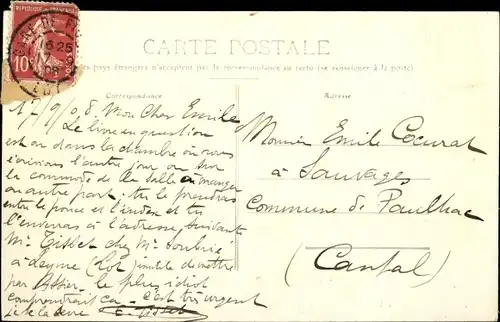 CARTE POSTALE
des pays étrangers n'acceptent pas la correspondance au recto (se renseigner à la poste).
Correspondance
Adresse
REPUBLIQUE FRANÇAISE
GARE DE
6 25
10
17/9/08 Mon Cher Emile
Le livre en question
est ou dans la chambre où nous
écrivions l'autre jour ou sur
la commode de la salle à manger
ou autre part. tu le prendras
entre le pouce et l'index et tu
l'enverras à l'adresse suivante
Mr Tisset chez Mr Soulié
à Leyme (Lot) inutile de mettre
par Assier. le plus idiot
comprendrait ça. C'est très urgent
Monsieur Emile Cocural
à Sauvages
Commune de Paulhac
(Cantal)